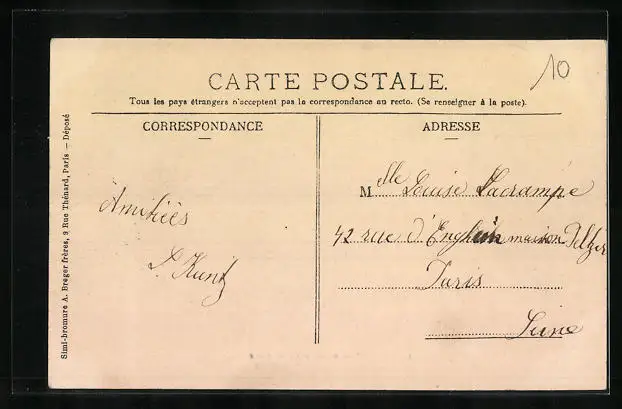 10
CARTE POSTALE.
Tous les pays étrangers n'acceptent pas la correspondance au recto. (Se renseigner à la poste).
CORRESPONDANCE
ADRESSE
Amitiées
L. Kuntz
Mlle Louise Lacrampe
42 rue d'Enghien maison Pelzer
Paris
Seine
Simi-bromure A. Breger frères, 9 Rue Thénard, Paris — Déposé